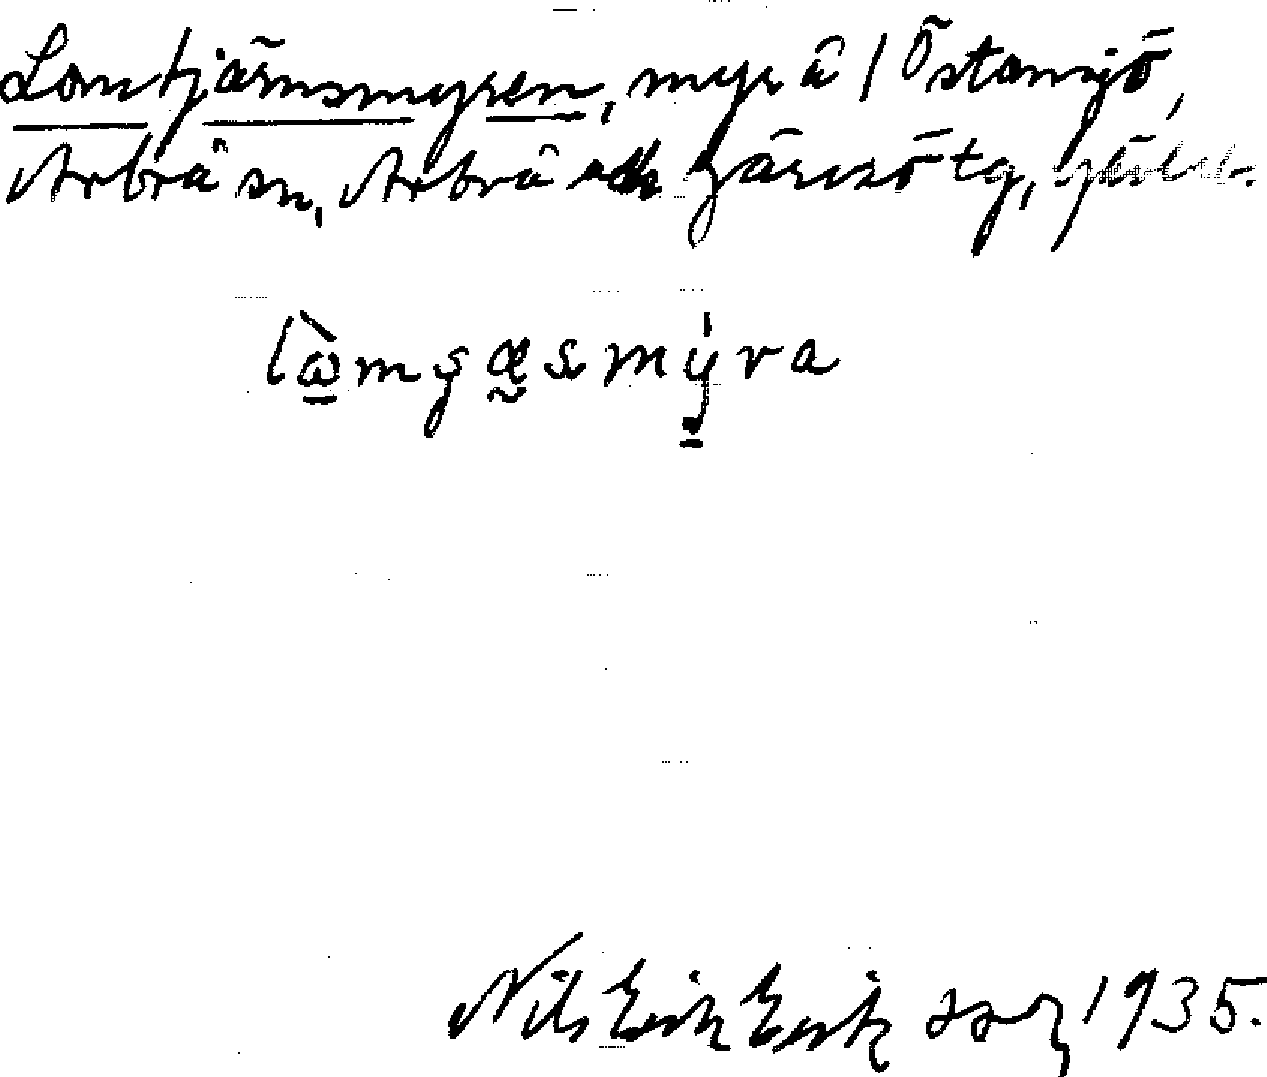 Lomtjärnsmyren, myr å / Östansjö,
Arbrå sn, Arbrå och Järvsö tg, Gävleb.
lòmçæsmýra
Nils Erik Eriksson 1935.